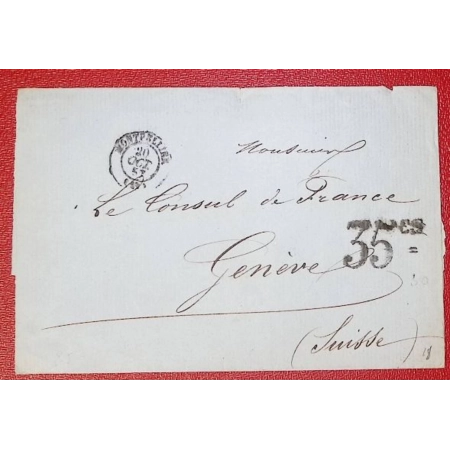 MONTPELLIER
20
OCT.
57
Monsieur
Le Consul de France
35 cs
Genève
=
(Suisse)
18